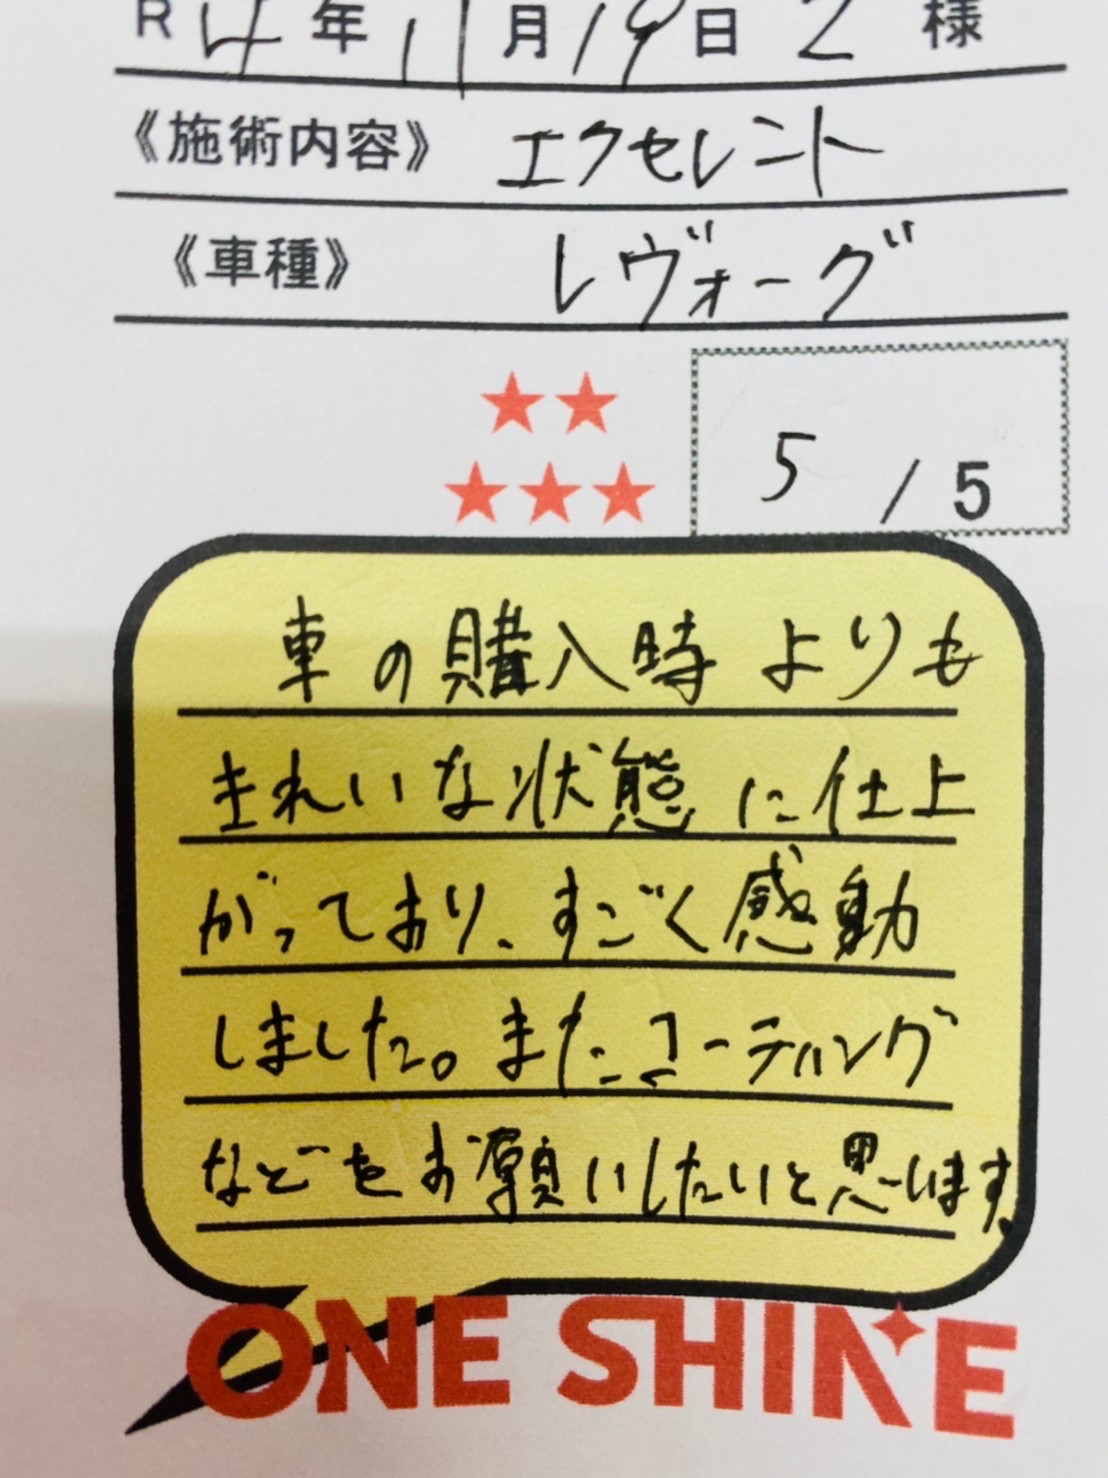 R 4 年 11 月 19 日 Z 様
《施術内容》 エクセレント
《車種》 レヴォーグ
★★
★★★
5 / 5
車の購入時よりも
きれいな状態に仕上
がっており、すごく感動
しました。またコーティング
などをお願いしたいと思います。
ONE SHINE